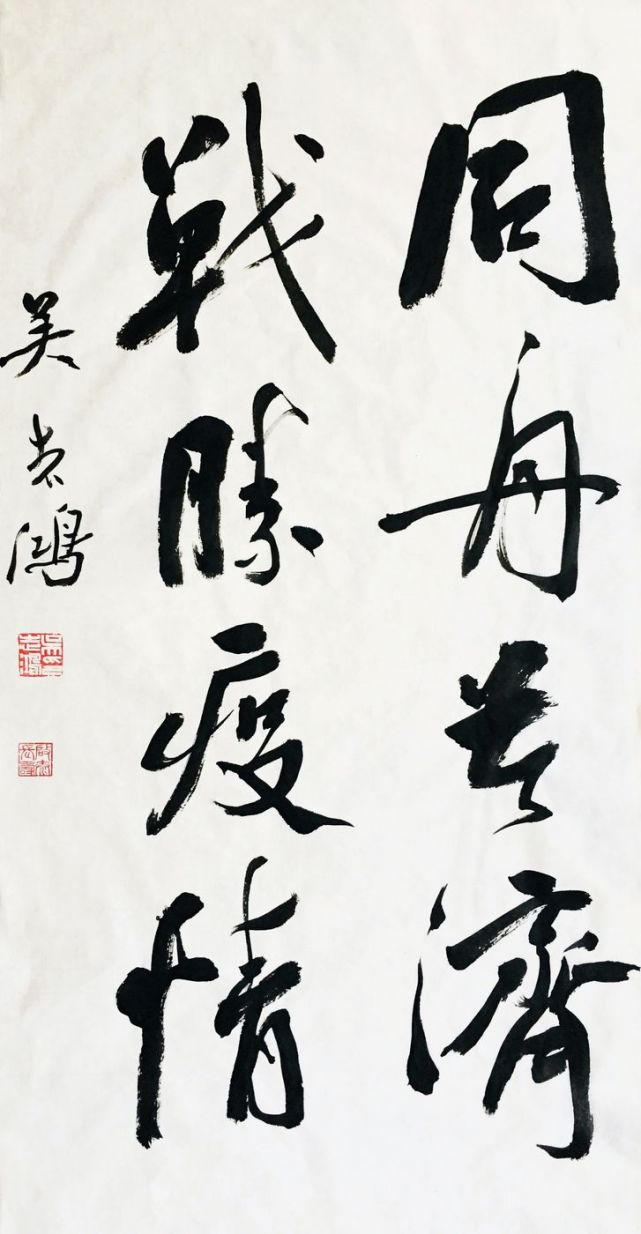 同舟共濟
戰勝疫情
吴志鴻